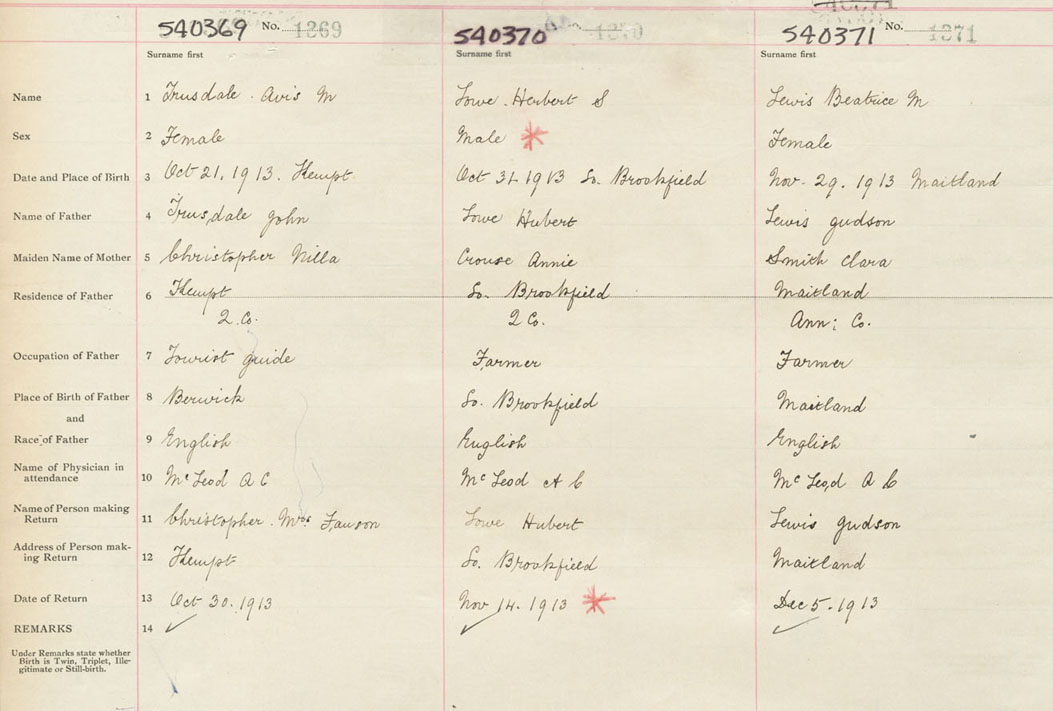 540369 No. 1269 540370 No. 1270 540371 No. 1271
Surname first Surname first Surname first
Name 1 Trusdale. Avis M Lowe. Herbert S Lewis Beatrice M
Sex 2 Female Male * Female
Date and Place of Birth 3 Oct 21, 1913. Kempt. Oct 31 1913 So. Brookfield Nov. 29. 1913 Maitland
Name of Father 4 Trusdale John Lowe Hubert Lewis Judson
Maiden Name of Mother 5 Christopher Nilla Crouse Annie Smith Clara
Residence of Father 6 Kempt So. Brookfield Maitland
2 Co. 2 Co. Ann; Co.
Occupation of Father 7 Tourist guide Farmer Farmer
Place of Birth of Father 8 Berwick So. Brookfield Maitland
and
Race of Father 9 English English English
Name of Physician in
attendance 10 McLeod A C McLeod A C McLeod A C
Name of Person making
Return 11 Christopher. Mrs Lowe Hubert Lewis Judson
Address of Person mak-
ing Return 12 Kempt So. Brookfield Maitland
Date of Return 13 Oct 30. 1913 Nov 14. 1913 * Dec 5. 1913
REMARKS 14 ✓ ✓ ✓
Under Remarks state whether
Birth is Twin, Triplet, Ille-
gitimate or Still-birth.